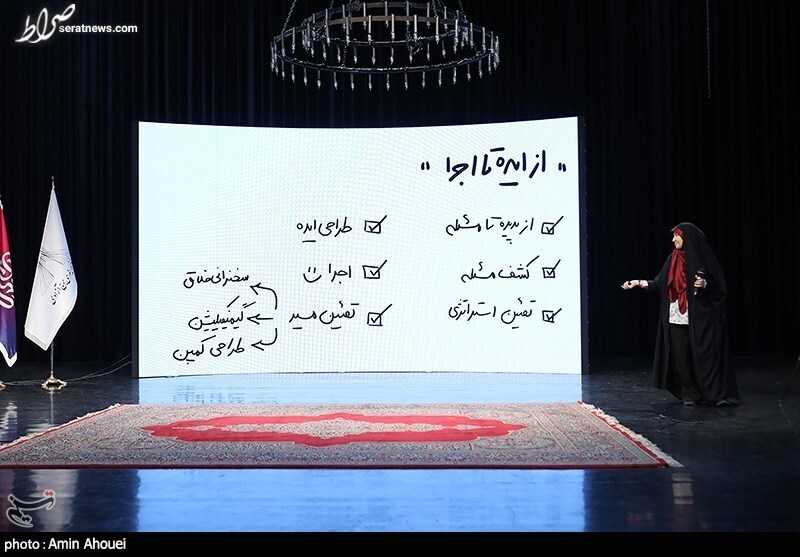 صراط
seratnews.com
" از ایده تا اجرا "
از پدیده تا مسئله
کشف مسئله
تعیین استراتژی
طراحی ایده
اجرات
تعیین مسیر
سخنرانی خلاق
گیمیفیکیشن
طراحی کمپین
تسنیم
photo : Amin Ahouei